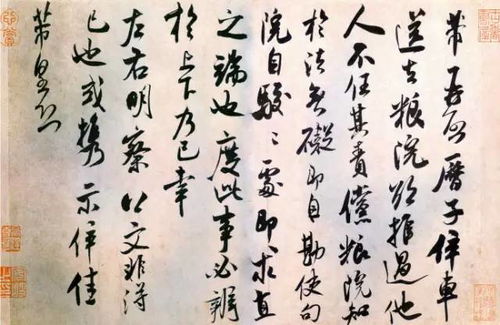 芾再啓曆子仵車
送去粮院欲推過他
人不任其責儻粮院知
於法無礙即自勘使句
院自駮〻處即求直
之端也度此事必辨
於上下乃已幸
左右明察以文非得
已也或攜示仵佳
芾皇恐